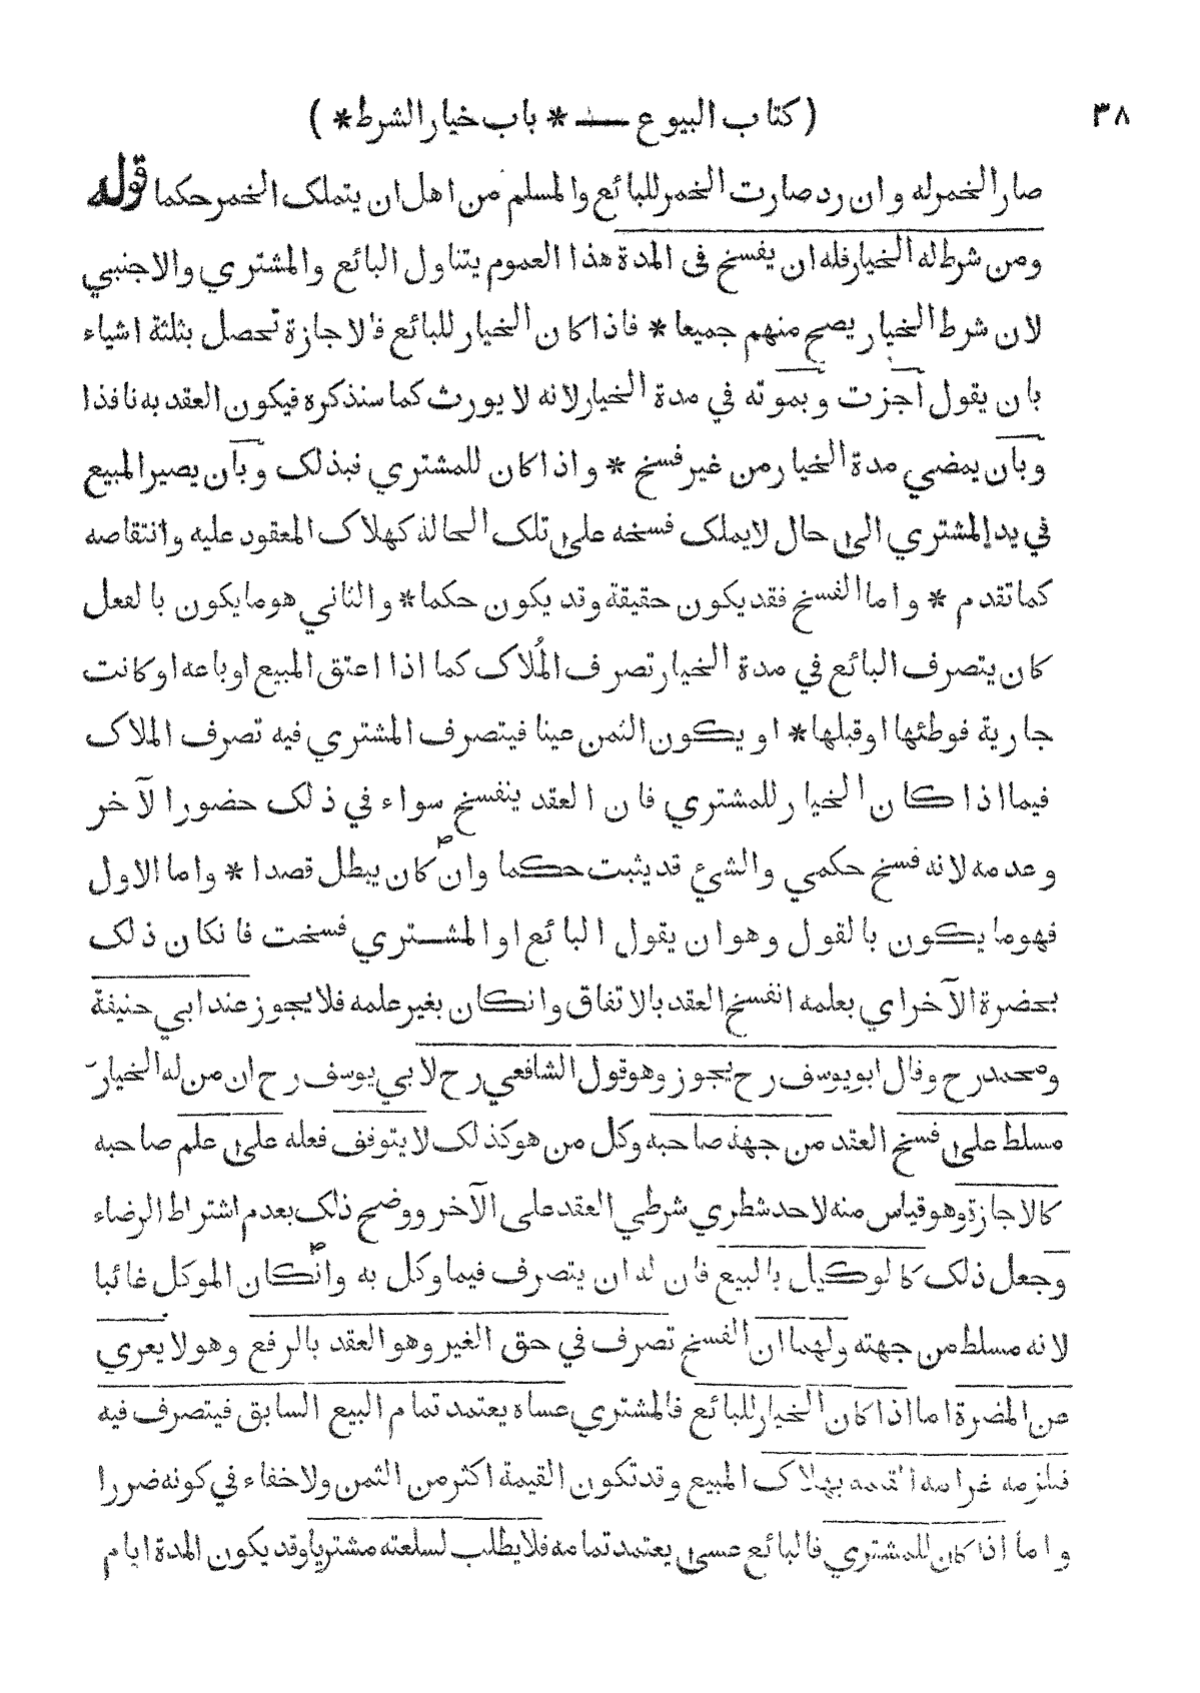 ٣٨
( كتاب البيوع — * باب خيار الشرط * )
صار الخمر له وان رد صارت الخمر للبائع والمسلم من اهل ان يتملك الخمر حكما قوله
ومن شرط له الخيار فله ان يفسخ فى المدة هذا العموم يتناول البائع والمشتري والاجنبي
لان شرط الخيار يصح منهم جميعا * فاذا كان الخيار للبائع فالاجازة تحصل بثلثة اشياء
بان يقول اجزت وبموته في مدة الخيار لانه لا يورث كما سنذكره فيكون العقد به نافذا
وبان يمضي مدة الخيار من غير فسخ * واذا كان للمشتري فبذلك وبان يصير المبيع
في يد المشتري الى حال لايملك فسخه على تلك الحالة كهلاك المعقود عليه وانتقاصه
كما تقدم * واما الفسخ فقد يكون حقيقة وقد يكون حكما * والثاني هو ما يكون بالفعل
كان يتصرف البائع في مدة الخيار تصرف المُلاك كما اذا اعتق المبيع او باعه او كانت
جارية فوطئها او قبلها * او يكون الثمن عينا فيتصرف المشتري فيه تصرف الملاك
فيما اذا كان الخيار للمشتري فان العقد ينفسخ سواء في ذلك حضور الآخر
وعدمه لانه فسخ حكمي والشئ قد يثبت حكما وان كان يبطل قصدا * واما الاول
فهو ما يكون بالقول وهو ان يقول البائع او المشتري فسخت فانكان ذلك
بحضرة الآخر اي بعلمه انفسخ العقد بالاتفاق وانكان بغير علمه فلا يجوز عند ابي حنيفة
ومحمد رح وقال ابو يوسف رح يجوز وهو قول الشافعي رح لابي يوسف رح ان من له الخيار
مسلط على فسخ العقد من جهة صاحبه وكل من هو كذلك لا يتوقف فعله على علم صاحبه
كالاجازة وهو قياس منه لاحد شطري شرطي العقد على الآخر ووضح ذلك بعدم اشتراط الرضاء
وجعل ذلك كالوكيل بالبيع فان له ان يتصرف فيما وكل به وانكان الموكل غائبا
لانه مسلط من جهته ولهما ان الفسخ تصرف في حق الغير وهو العقد بالرفع وهو لا يعري
عن المضرة اما اذا كان الخيار للبائع فالمشتري عساه يعتمد تمام البيع السابق فيتصرف فيه
فتلزمه غرامة القيمة بهلاك المبيع وقد تكون القيمة اكثر من الثمن ولا خفاء في كونه ضررا
واما اذا كان للمشتري فالبائع عسى يعتمد تمامه فلا يطلب لسلعته مشتريا وقد يكون المدة ايام